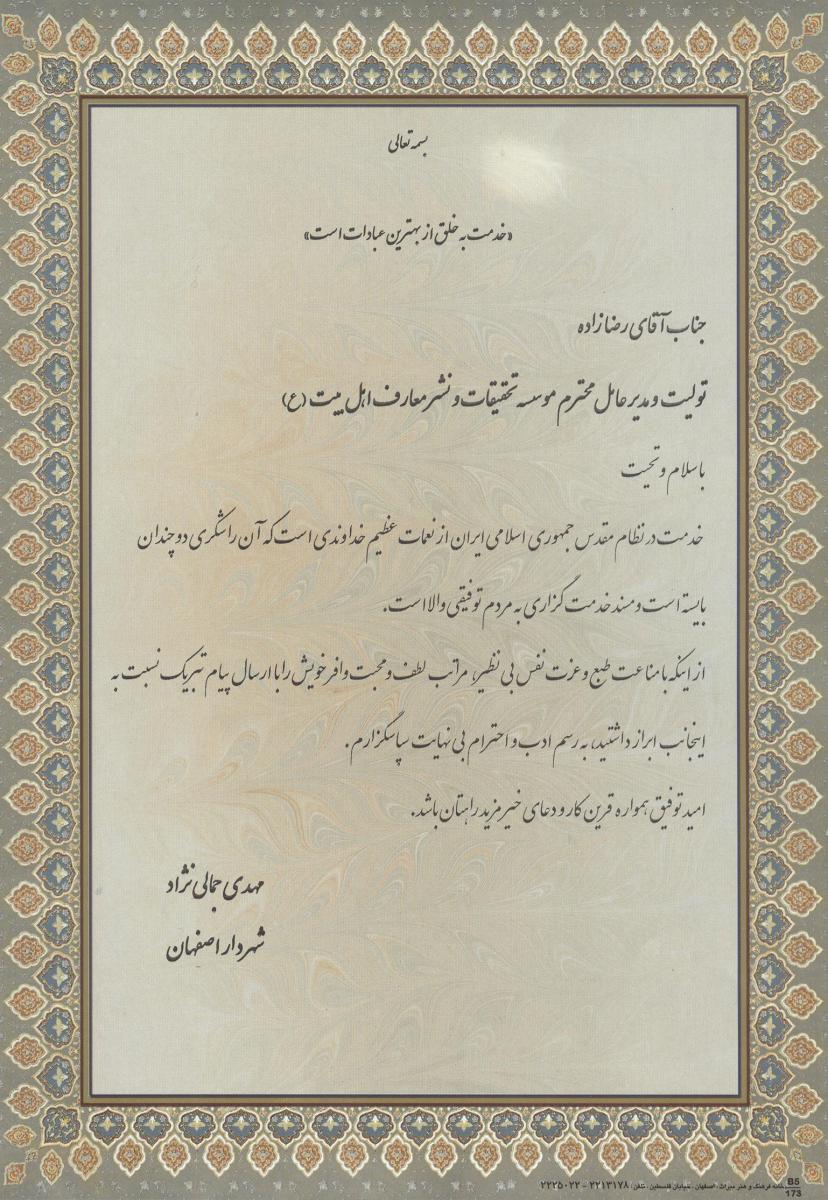 بسمه تعالی
«خدمت به خلق از بهترین عبادات است»
جناب آقای رضازاده
تولیت و مدیر عامل محترم موسسه تحقیقات و نشر معارف اهل بیت (ع)
با سلام و تحیت
خدمت در نظام مقدس جمهوری اسلامی ایران از نعمات عظیم خداوندی است که آن را شکری دو چندان
بایسته است و مسند خدمت گزاری به مردم توفیقی والا است.
از اینکه با مناعت طبع و عزت نفس بی نظیر، مراتب لطف و محبت وافر خویش را با ارسال پیام تبریک نسبت به
اینجانب ابراز داشتید، به رسم ادب و احترام بی نهایت سپاسگزارم.
امید توفیق همواره قرین کار و دعای خیر مزید راهتان باشد.
مهدی جمالی نژاد
شهردار اصفهان
خانه فرهنگ و هنر میراث، اصفهان، خیابان فلسطین، تلفن: ۲۲۱۳۱۷۸ - ۲۲۲۵۰۲۲
B5
173